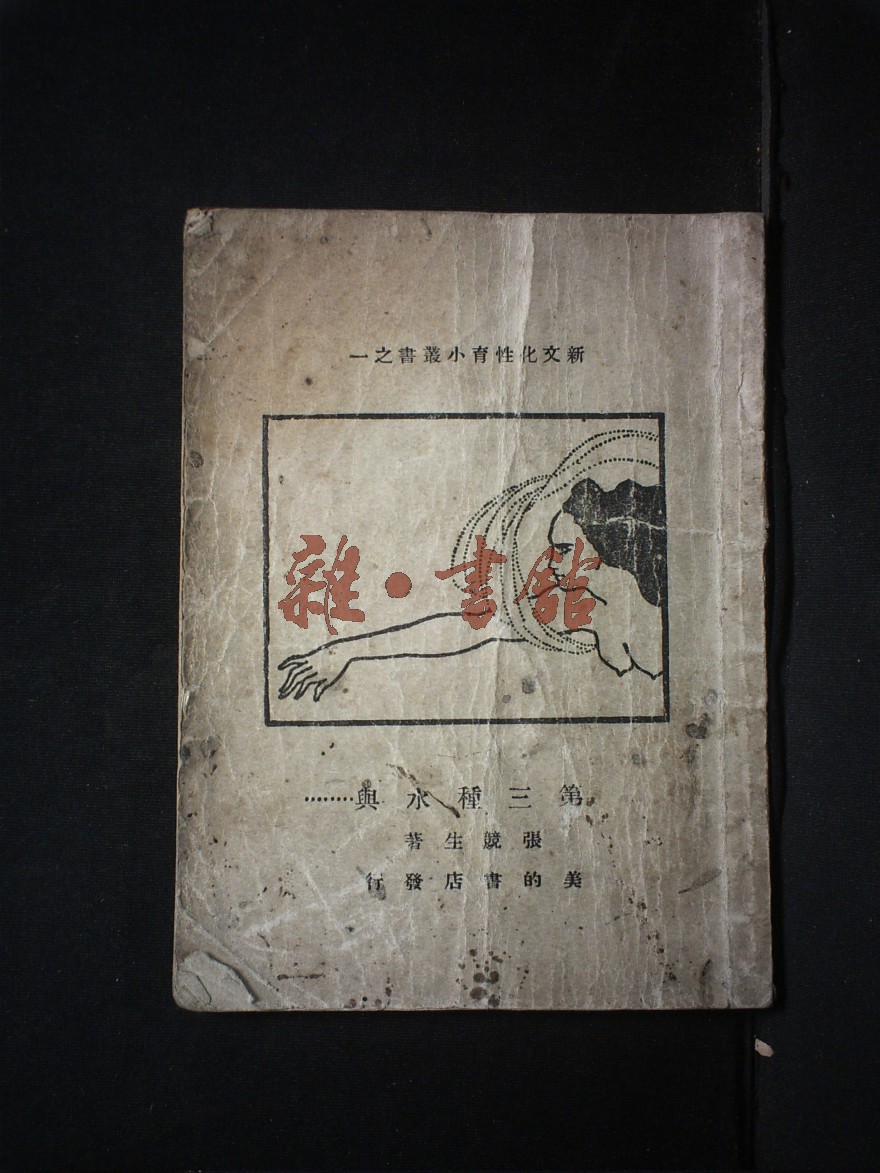 新文化性育小叢書之一
雜·書館
第三種水與………
張競生著
美的書店發行